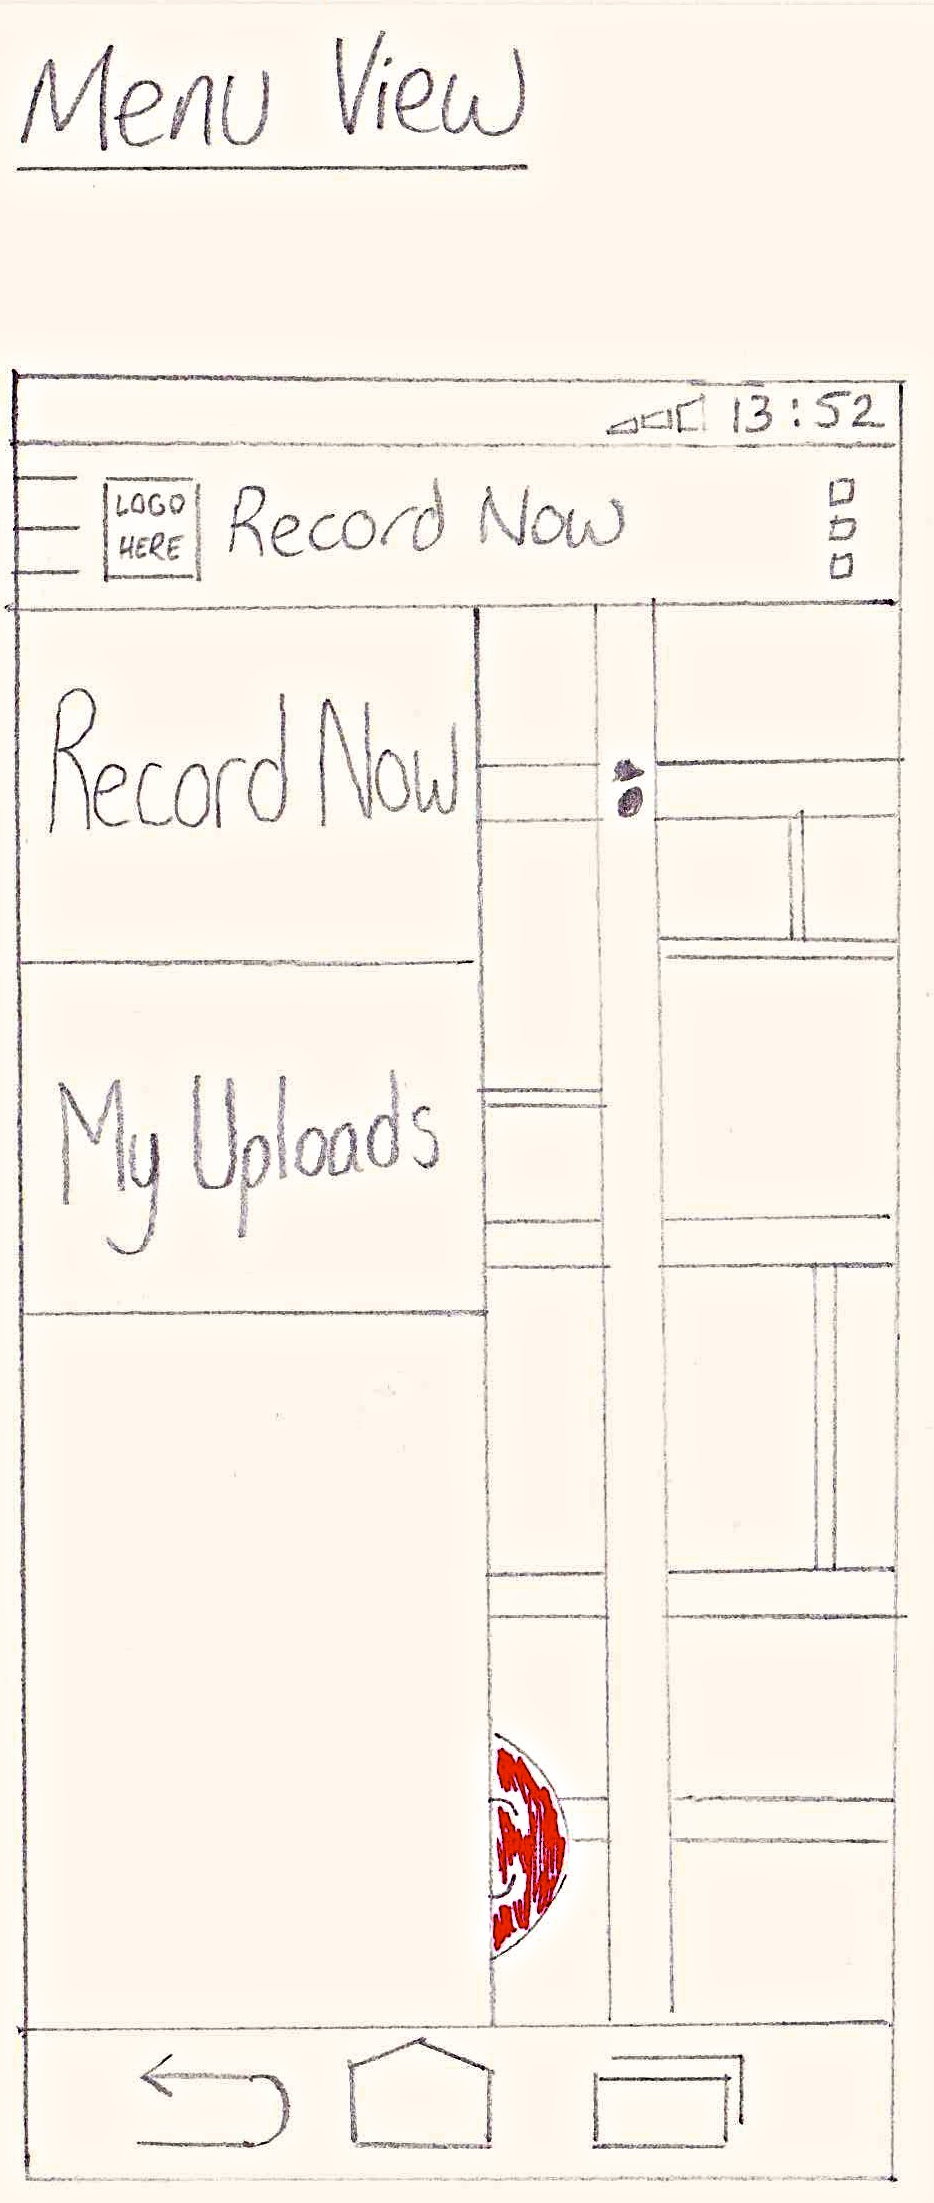 Menu View
13:52
LOGO
HERE
Record Now
Record Now
My Uploads